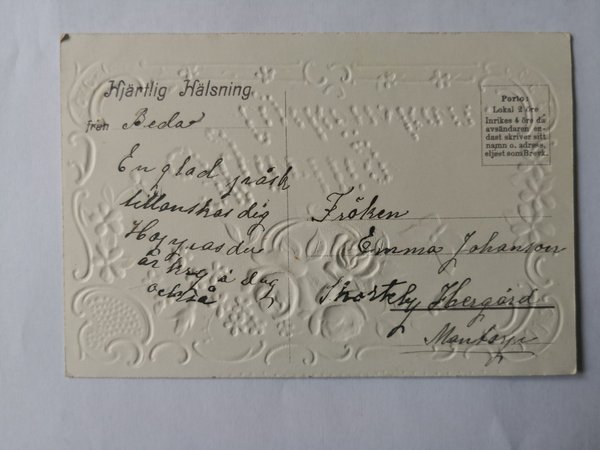 Hjärtlig Hälsning
från Beda
En glad påsk
tillönskas dig
Hoppas du
är kry å dag
också
Porto:
Lokal 2 öre
Inrikes 4 öre då
avsändaren en-
dast skriver sitt
namn o. adress,
eljest som Brevk.
Fröken
Emma Johanson
Skorteby Öfvergård
Mantorp